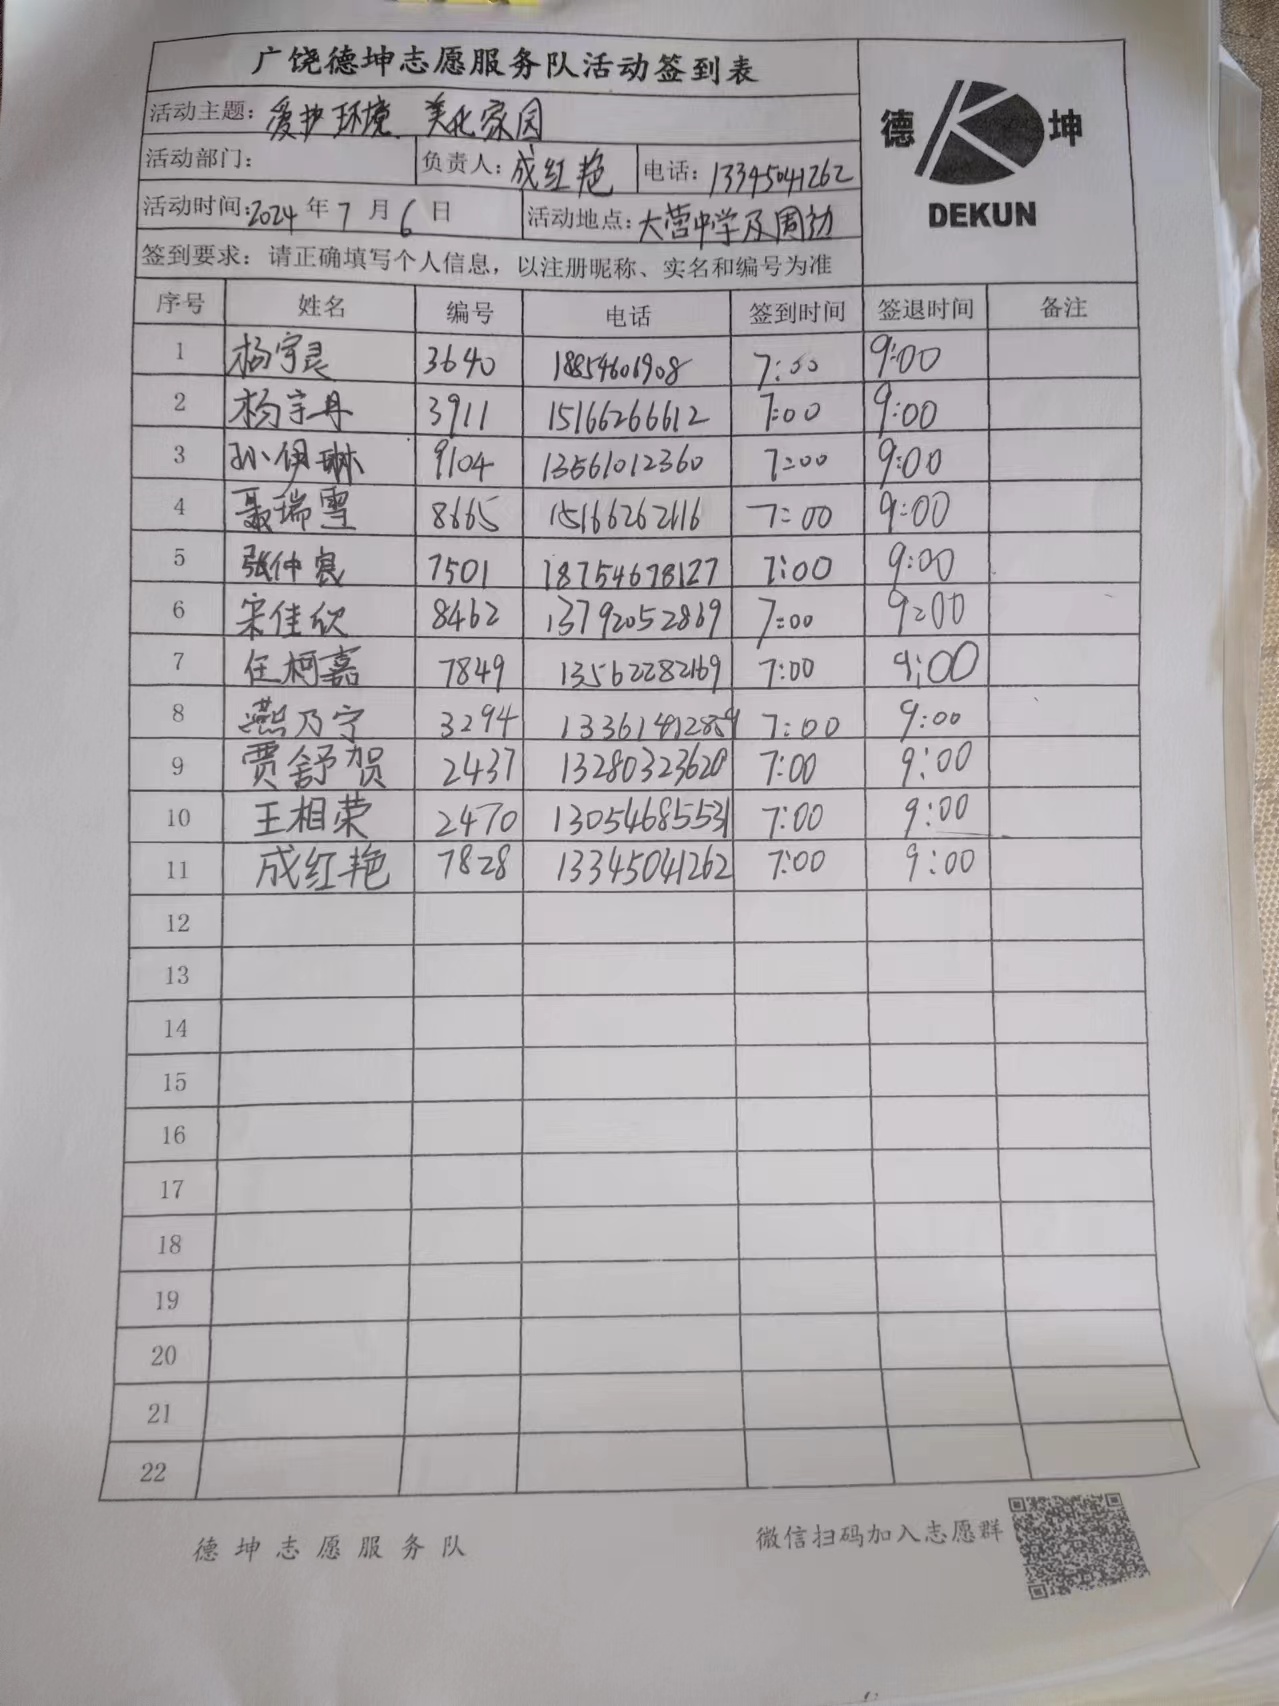 广饶德坤志愿服务队活动签到表
德 坤
DEKUN
活动主题：爱护环境 美化家园
活动部门： 负责人：成红艳 电话：13345041262
活动时间：2024年7月6日 活动地点：大营中学及周边
签到要求：请正确填写个人信息，以注册昵称、实名和编号为准
序号 姓名 编号 电话 签到时间 签退时间 备注
1 杨宇灵 3640 18854601908 7:00 9:00
2 杨宇丹 3911 15166266612 7:00 9:00
3 孙伊琳 9104 13561012360 7:00 9:00
4 聂瑞雪 8665 15166262116 7:00 9:00
5 张仲宸 7501 18754678127 7:00 9:00
6 宋佳欣 8462 13792052869 7:00 9:00
7 任柯嘉 7849 13562282169 7:00 9:00
8 燕乃宁 3294 13361492859 7:00 9:00
9 贾舒贺 2437 13280323620 7:00 9:00
10 王相荣 2470 13054685531 7:00 9:00
11 成红艳 7828 13345041262 7:00 9:00
12
13
14
15
16
17
18
19
20
21
22
德坤志愿服务队 微信扫码加入志愿群